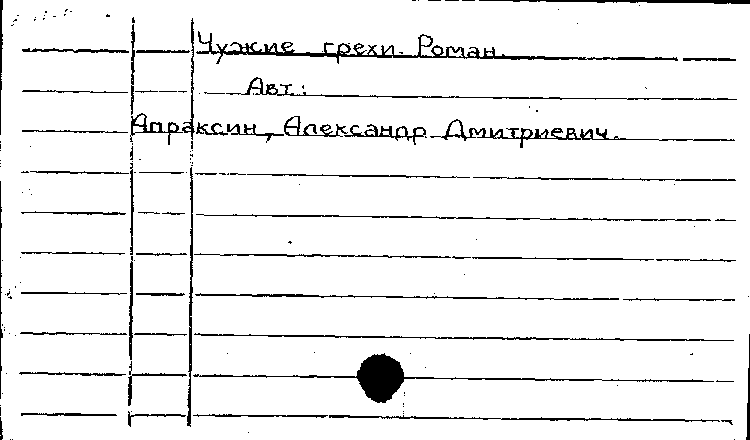 Чужие грехи. Роман.
Авт.:
Апраксин, Александр Дмитриевич.